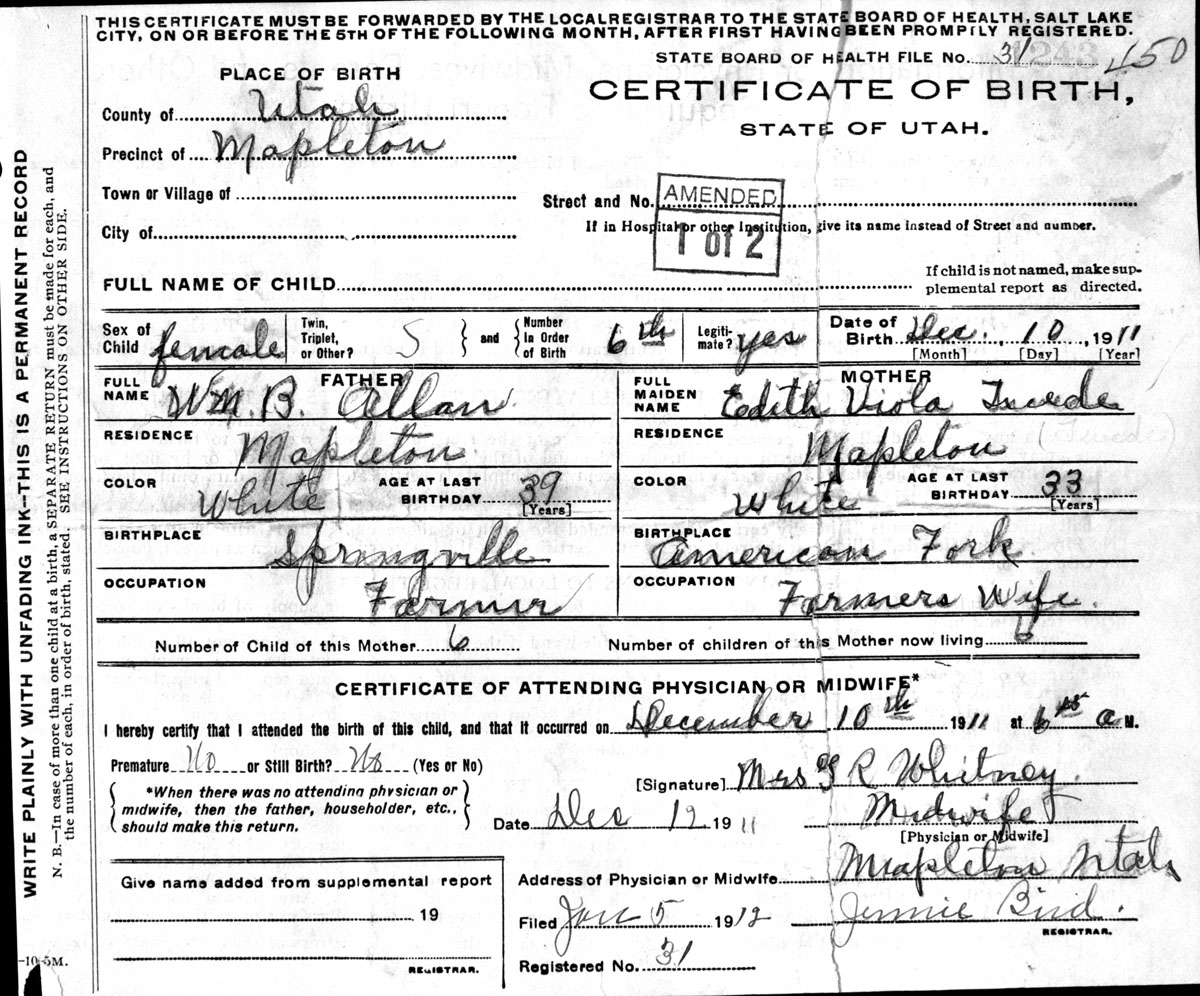 THIS CERTIFICATE MUST BE FORWARDED BY THE LOCAL REGISTRAR TO THE STATE BOARD OF HEALTH, SALT LAKE
CITY, ON OR BEFORE THE 5TH OF THE FOLLOWING MONTH, AFTER FIRST HAVING BEEN PROMPTLY REGISTERED.
STATE BOARD OF HEALTH FILE No. 31 450
PLACE OF BIRTH
CERTIFICATE OF BIRTH,
STATE OF UTAH.
County of Utah
Precinct of Mapleton
Town or Village of
City of
Street and No.
AMENDED
1 of 2
If in Hospital or other Institution, give its name instead of Street and number.
FULL NAME OF CHILD
If child is not named, make sup-
plemental report as directed.
Sex of Child female
Twin, Triplet, or Other? S and Number In Order of Birth 6th
Legiti-mate? yes
Date of Birth Dec. 10, 1911
[Month] [Day] [Year]
FATHER
FULL NAME Wm. B. Allan
MOTHER
FULL MAIDEN NAME Edith Viola
RESIDENCE Mapleton
RESIDENCE Mapleton
COLOR White AGE AT LAST BIRTHDAY 39 [Years]
COLOR White AGE AT LAST BIRTHDAY 33 [Years]
BIRTHPLACE Springville
BIRTHPLACE American Fork
OCCUPATION Farmer
OCCUPATION Farmers Wife.
Number of Child of this Mother 6 Number of children of this Mother now living 6
CERTIFICATE OF ATTENDING PHYSICIAN OR MIDWIFE*
I hereby certify that I attended the birth of this child, and that it occurred on December 10th 1911 at 6 45 a M.
Premature No or Still Birth? No (Yes or No)
*When there was no attending physician or
midwife, then the father, householder, etc.,
should make this return.
[Signature] Mrs G R Whitney.
Date Dec 12 1911 Midwife
[Physician or Midwife]
Address of Physician or Midwife Mapleton Utah
Give name added from supplemental report
19
REGISTRAR.
Filed Jan 5 1912 Jennie Bird.
REGISTRAR.
Registered No. 31
WRITE PLAINLY WITH UNFADING INK—THIS IS A PERMANENT RECORD
N. B.—In case of more than one child at a birth, a SEPARATE RETURN must be made for each, and
the number of each, in order of birth, stated. SEE INSTRUCTIONS ON OTHER SIDE.
-10-5M.